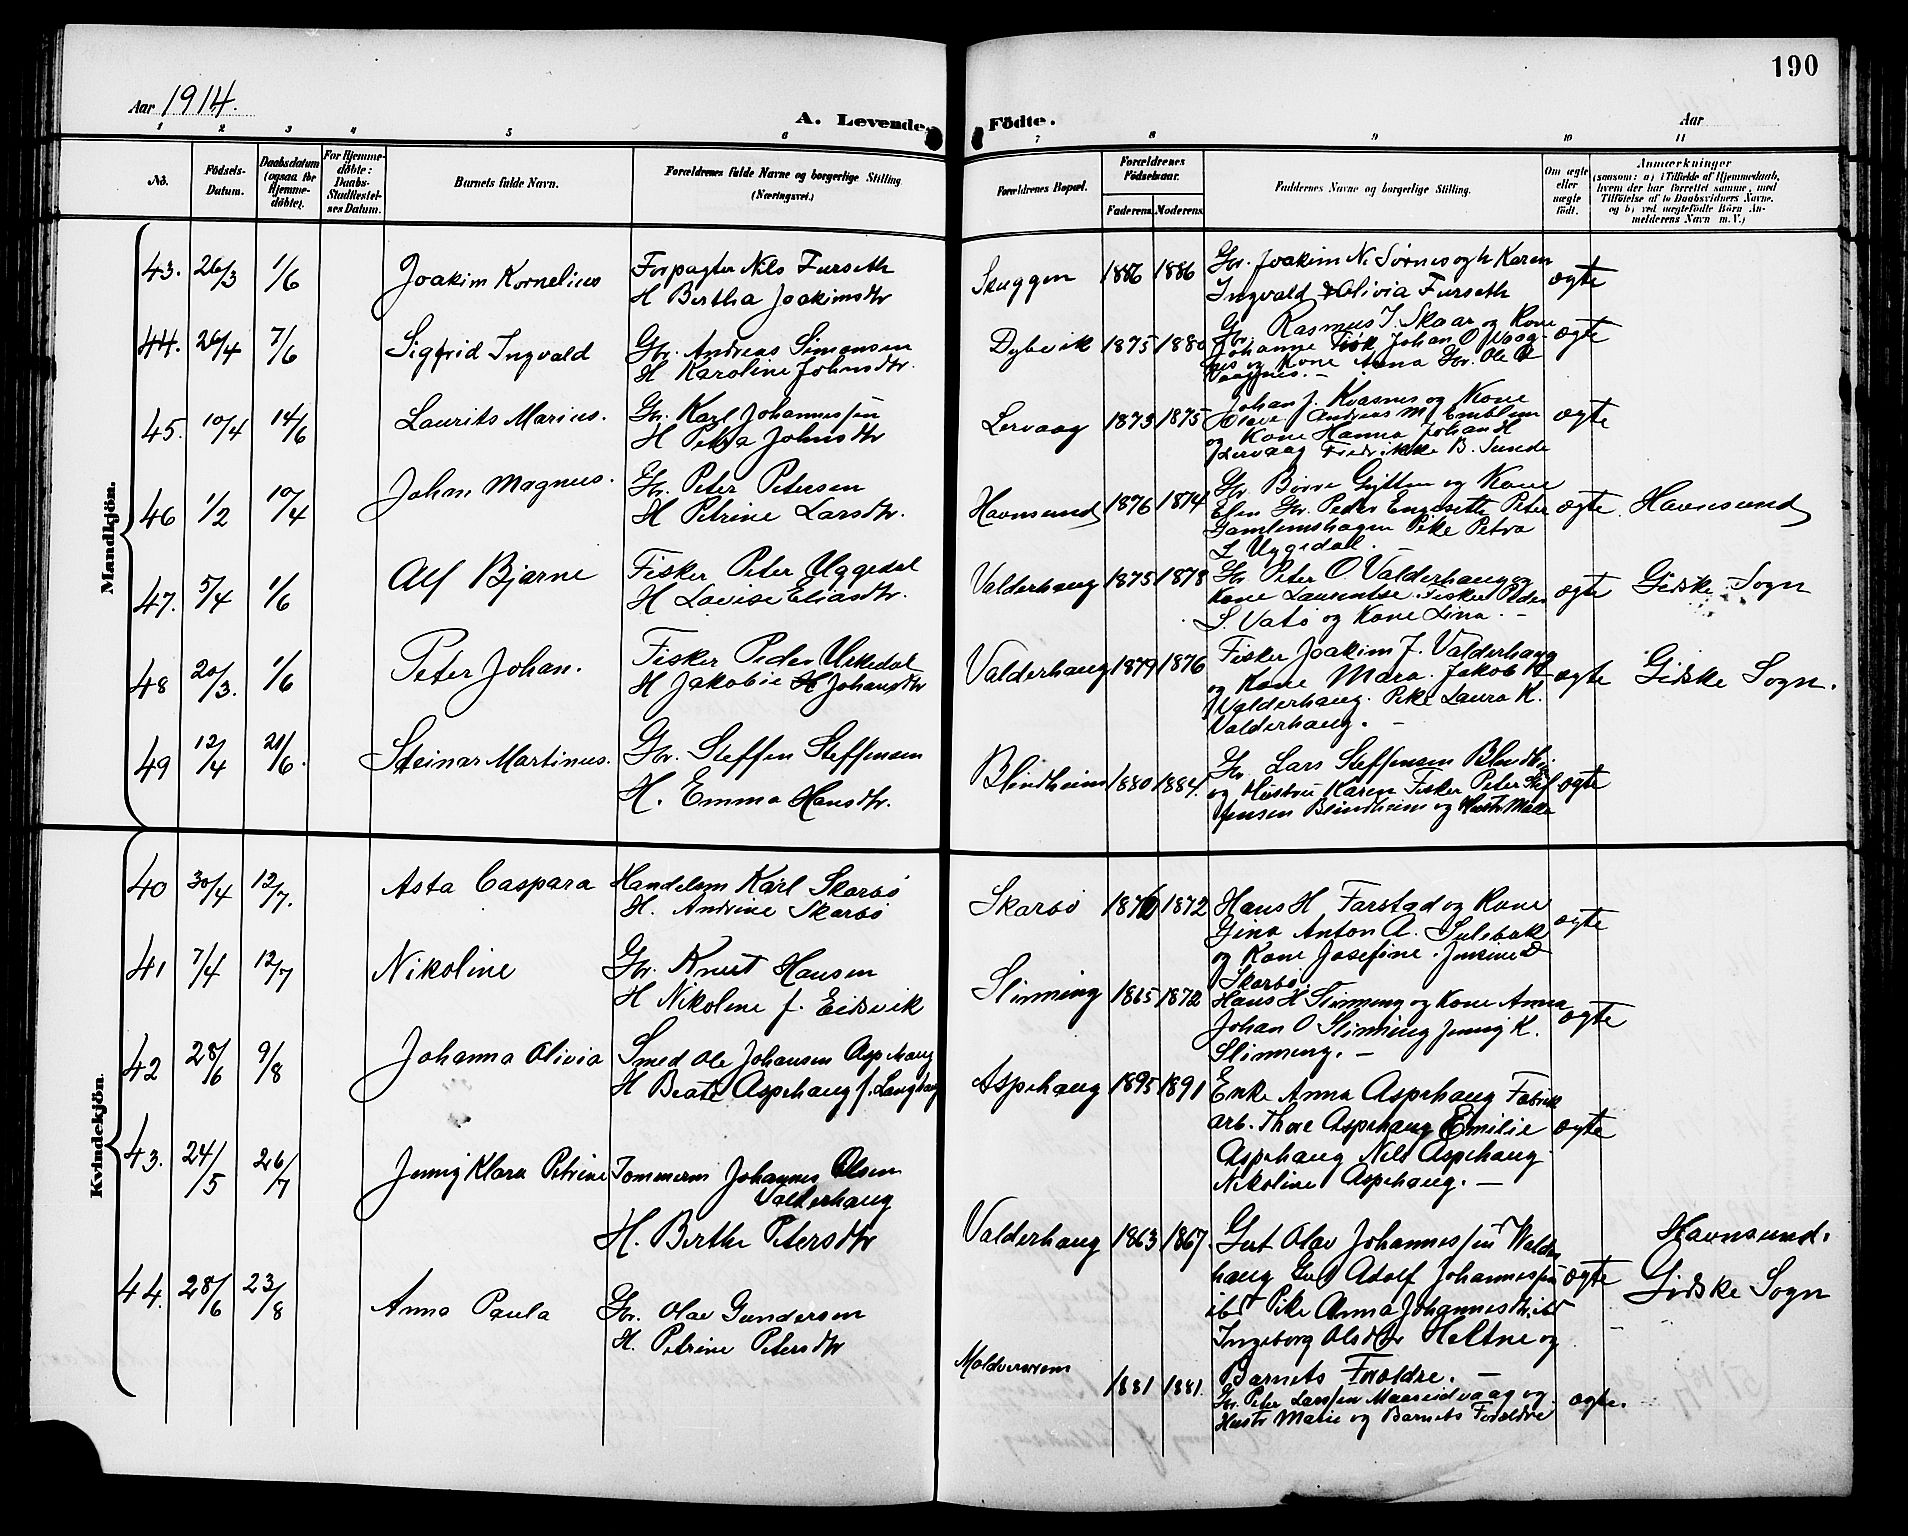 190
Aar 1914.
A. Levende
Födte.
Aar
1 2 3 4 5 6 7 8 9 10 11
No.
Födsels-Datum.
Daabsdatum (ogsaa for Hjemme-döbte).
For Hjemme-döbte: Daabs-Stadfæstel-ses Datum.
Barnets fulde Navn.
Forældrenes fulde Navne og borgerlige Stilling (Næringsvei.)
Forældrenes Bopæl.
Forældrenes Födselsaar.
Faderens. Moderens.
Faddernes Navne og borgerlige Stilling.
Om ægte eller uægte födt.
Anmærkninger
(saasom: a) i Tilfælde af Hjemmedaab,
hvem der har forrettet samme, med
Tilföielse af to Daabsvidners Navne.
og b) ved uægtefödte Börn An-
melderens Navn m. V.)
Mandkjön.
43. 26/3 1/6 Joakim Kornelius
Forpagter Nils Furseth
H Bertha Joakimsdtr
Skuggen 1886 1886
Gbr. Joakim N. Sørnes og h Karen
Ingvald & Olivia Furseth
ægte
44. 26/4 7/6 Sigfrid Ingvald
Gbr. Andreas Simonsen
H Karoline Johnsdtr.
Dybvik 1875 1880
Gbr. Rasmus J. Skaar og Kone
Johanne Fisk Johan O Vaag-
nes og Kone Anna Gbr. Ole
Vaagnes. —
ægte
45. 10/4 14/6 Laurits Marius.
Gbr. Karl Johannessen
H Petra Johnsdtr
Lervaag 1873 1875
Johan J. Kvasnes og Kone
Olave Andreas M Emblem
og Kone Hanna Johan H
Lervaag Fredrikke B. Sunde
ægte
46 1/2 10/4 Johan Magnus.
Gbr. Peter Petersen
H Petrine Larsdtr.
Havnsund 1876 1874
Gbr Børre Gjytten og Kone
Elen Gbr. Peder Engesette Peter
Gamlemshagen Pike Petra
L Uggedal. —
ægte. Havnsund
47. 5/4 1/6 Alf Bjarne
Fisker Peter Uggedal
H Lovise Eliasdtr.
Valderhaug 1875 1878
Gbr Peter O. Valderhaug og
Kone Laurentse. Fisker Peder
S. Vatø og Kone Lina. —
ægte Gidske Sogn
48 20/3. 1/6 Peter Johan.
Fisker Peder Urkedal
H Jakobie Johansdtr
Valderhaug 1879 1876
Fisker Joakim J. Valderhaug
og Kone Mara. Jakob
Valderhaug. Pike Laura K.
Valderhaug. —
ægte Gidske Sogn.
49 12/4 21/6. Steinar Martinus.
Gbr. Steffen Steffensen
H. Emma Hansdtr.
Blindheim 1880 1884.
Gbr. Lars Steffensen Blindh
og Hustru Karen Fisker Peter Stef
fensen Blindheim og Hustr
ægte
Kvindekjön.
40 30/4 12/7. Asta Caspara
Handelsm Karl Skarbø
H. Andrine Skarbø
Skarbø 1876 1872
Hans H Farstad og Kone
Gina Anton A. Sulebak
og Kone Josefine.
Skarbø.
ægte
41 7/4 12/7 Nikoline
Gbr. Knut Hansen
H Nikoline f. Eidsvik
Slinning 1865 1872
Hans H Slinning og Kone Anna
Johan O Slinning Jenny K.
Slinning. —
ægte
42 28/6 9/8 Johanna Olivia
Smed Ole Johansen Aspehaug
H Beate Aspehaug f. Langhaug
Aspehaug 1895 1891
Enke Anna Aspehaug Fabrik
arb. Thore Aspehaug Emilie
Aspehaug Nils Aspehaug
Nikoline Aspehaug. —
ægte
43. 24/5 26/7 Jenny Klara Petrine
Tommerm Johannes Olsen
Valderhaug
H. Berthe Petersdtr
Valderhaug 1863 1867.
Gut Olav Johannessen Valder
haug Gut Adolf Johannessen
ibd Pike Anna Johannesdtr. ibd
Ingeborg Olsdtr Heltne og
Barnets Foreldre. —
ægte Havnsund.
Gidske Sogn
44. 28/6 23/8 Anna Paula
Gbr. Olav Gundersen
H. Petrine Petersdtr
Moldversrem 1881 1881.
Gbr. Peter Larssen Maareidvaag og
Hustr Marie og Barnets Foreldre
ægte.